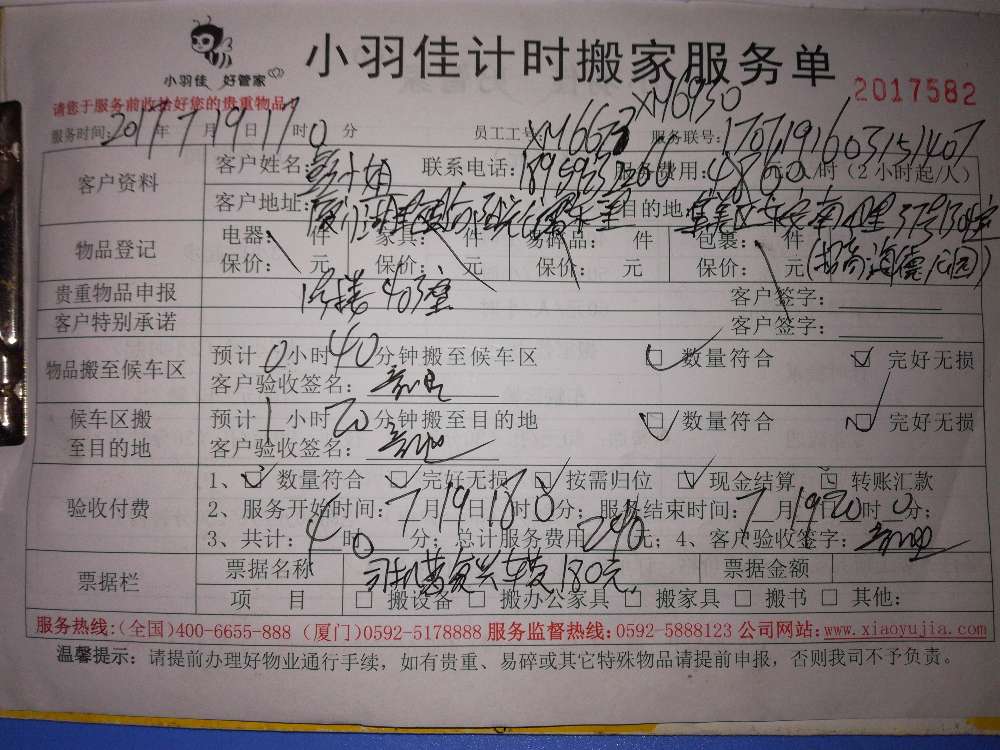 小羽佳 好管家
小羽佳计时搬家服务单
2017582
请您于服务前收拾好您的贵重物品
服务时间: 2017 年 7 月 19 日 17 时 0 分 员工工号: XM6673 XM6950 服务联号:
客户资料 客户姓名: 联系电话: 服务费用: 元/人/时 (2小时起/人)
客户地址: 目的地
物品登记 电器: 件 家具: 件 易碎品: 件 包裹: 件
保价: 元 保价: 元 保价: 元 保价: 元
贵重物品申报 403室 客户签字:
客户特别承诺 客户签字:
物品搬至候车区 预计 0 小时 40 分钟搬至候车区 数量符合 完好无损
客户验收签名:
候车区搬至目的地 预计 1 小时 20 分钟搬至目的地 数量符合 完好无损
客户验收签名:
验收付费 1、 数量符合 完好无损 按需归位 现金结算 转账汇款
2、服务开始时间: 7 月 19 日 时 0 分; 服务结束时间: 7 月 19 日 20 时 0 分;
3、共计: 4 时 0 分; 总计服务费用 240 元; 4、客户验收签字:
票据栏 票据名称 司机 180元 票据金额
项 目 搬设备 搬办公家具 搬家具 搬书 其他:
服务热线:(全国)400-6655-888 (厦门)0592-5178888 服务监督热线:0592-5888123 公司网站:www.xiaoyujia.com
温馨提示: 请提前办理好物业通行手续,如有贵重、易碎或其它特殊物品请提前申报,否则我司不予负责。